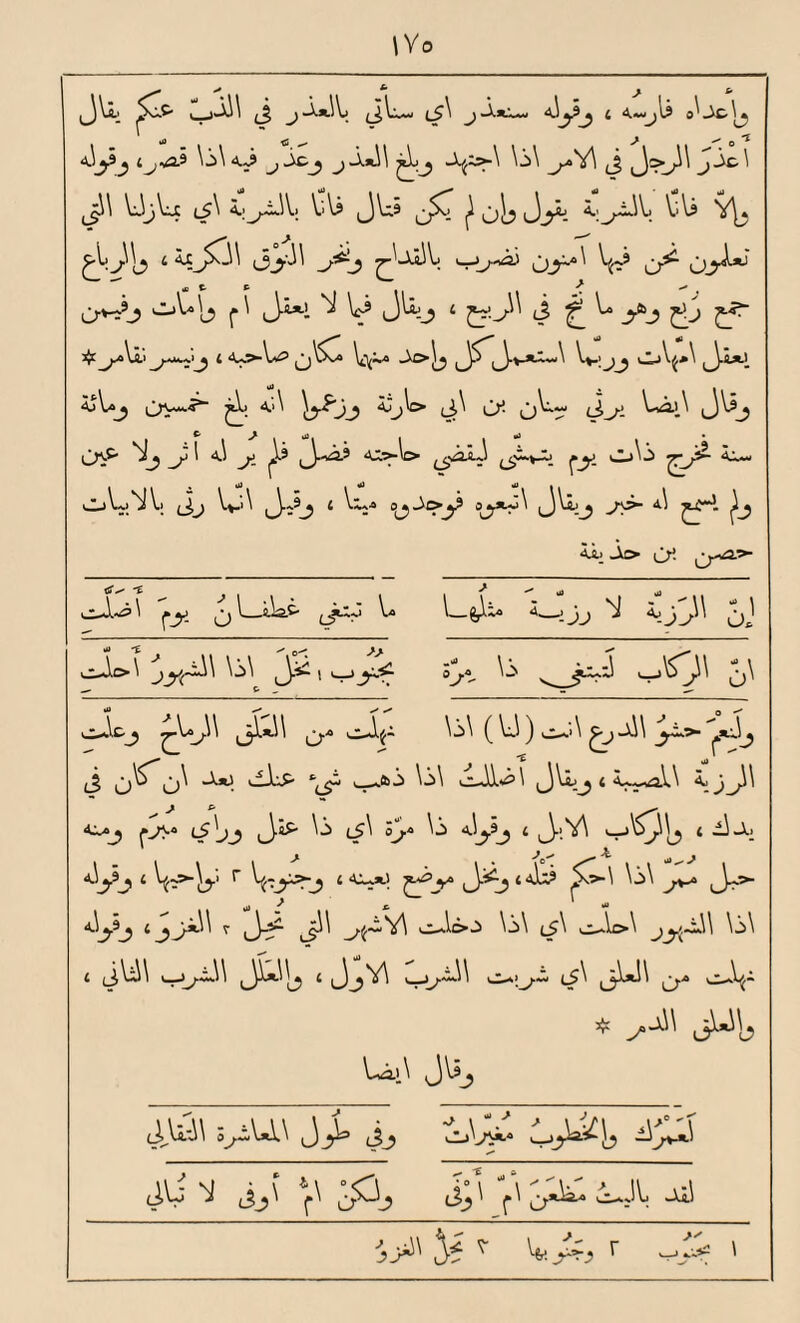 ١٧٥
وأعداه فارسه ، وقوله ستعذر اى ستأتى بالعذر فى الذبّ عنكم يقال
أعذرَ الرجُلُ فى الامر اذا اجتهد وبلغ العذر وعذّر فيه اذا قصّر ، وقوله
والّا فانّا بالشربّة يقول وان لم يكن فقال فانّا بالشربّة اى بمنازلنا التى
تعلمون نحن فيها آمنون نضرب بالقداح وننحر النوق الكريمة ، والرباع
جمع رُبَع وهو ما نُتج فى الربيع ، ويقال فيها لا يعقل أم وأمات وفيمن
يعقل أمهات وربما استعمل كل واحد منهما مكان صاحبه ، ونيسر نقامر *
وقال ايضا يرثى سنان بن ابى حارثة وزعموا انه بلغ خمسين ومائة
سنة فخرج ذات يوم يتمشى ليقضى حاجته فضلّ فلم يُرَ له أثر ولا عين
ولم يسمع له خبر ويقال اتبعوه فوجدوه ميتا ، وقيل انما رثى بالابيات
حصن بن حذيفة
إنّ الرَزيّةَ لا رَزِيّةَ مثلُها ما تبتغى غطفان يومَ أضلّت
إن الركابَ لتبتغى ذا مِرّة بجنوبِ ١ نَخْلَ اذا الشهورُ أحلّت
ولَنِعْمَ حشوُ الدرع انت (لنا) اذا نهلت من العَلَقِ الرماحُ وعلّت
الرزية المصيبة ، ويقال أضللت اذا ذهب شىء عنك بعد ان كان فى
يدك ، والركاب الابل ، وقوله ذا مرة اى ذا عقل ورأى مبرم ومنه
حبل ممر اذا أُحكم فتله ، ونخل موضع بعينه ، وجنوبها ٢ نواحيها ، وقوله
اذا الشهور أحلت اى اذا دخلت الأشهر التى تحلّ ٣ الغزو ، وقوله
نهلت من العلق اى شربت الشرب الأول ، والعلل الشرب الثانى ،
والعلق الدم *
وقال ايضا
لَعَمْرُكَ والخُطوبُ مغيّراتٌ وفى طُولِ المعاشرةِ التقالِى
لقد باليتُ مظعنَ أمّ أوفَى ولكنْ أمُّ أوفى لا تبالِى
١ بجُنُوب ٢ وجُنُوبها ٣ تحلّ الغزوُ